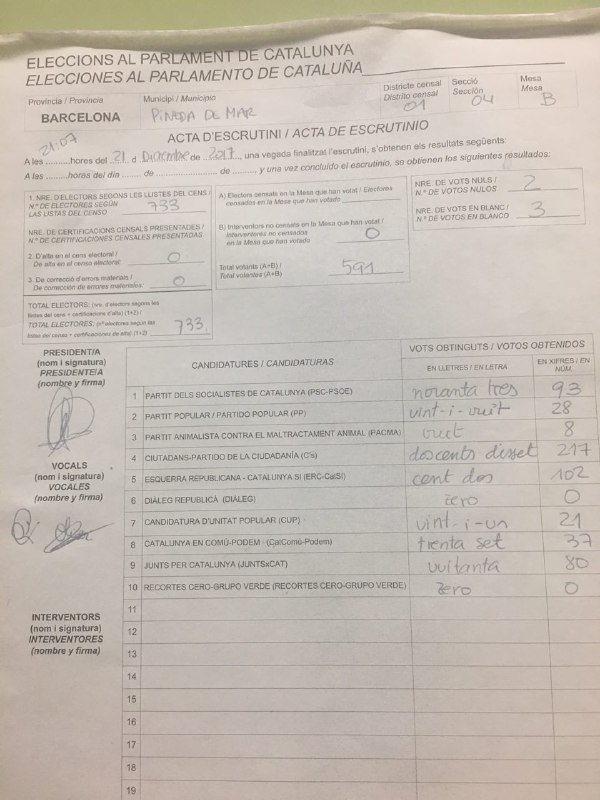 ELECCIONS AL PARLAMENT DE CATALUNYA
ELECCIONES AL PARLAMENTO DE CATALUÑA
Província / Provincia
BARCELONA
Municipi / Municipio
PINEDA DE MAR
Districte censal
Distrito censal
01
Secció
Sección
04
Mesa
Mesa
B
ACTA D'ESCRUTINI / ACTA DE ESCRUTINIO
21:07
A les ..........hores del 21 d Diciembre de 2017, una vegada finalitzat l'escrutini, s'obtenen els resultats següents:
A las ..........horas del día .......... de .......... de .........., y una vez concluido el escrutinio, se obtienen los siguientes resultados:
1. NRE. D'ELECTORS SEGONS LES LLISTES DEL CENS /
N.º DE ELECTORES SEGÚN
LAS LISTAS DEL CENSO
733
NRE. DE CERTIFICACIONS CENSALS PRESENTADES /
N.º DE CERTIFICACIONES CENSALES PRESENTADAS
2. D'alta en el cens electoral /
De alta en el censo electoral:
0
3. De correcció d'errors materials /
De corrección de errores materiales:
0
TOTAL ELECTORS: (nre. d'electors segons les
llistes del cens + certificacions d'alta) (1+2) /
TOTAL ELECTORES: (nº electores según las
listas del censo + certificaciones de alta) (1+2)
733
A) Electors censats en la Mesa que han votat / Electores
censados en la Mesa que han votado
B) Interventors no censats en la Mesa que han votat /
Interventores no censados
en la Mesa que han votado
0
Total votants (A+B) /
Total votantes (A+B)
591
NRE. DE VOTS NULS /
N.º DE VOTOS NULOS
2
NRE. DE VOTS EN BLANC /
N.º DE VOTOS EN BLANCO
3
PRESIDENT/A
(nom i signatura)
PRESIDENTE/A
(nombre y firma)
VOCALS
(nom i signatura)
VOCALES
(nombre y firma)
INTERVENTORS
(nom i signatura)
INTERVENTORES
(nombre y firma)
CANDIDATURES / CANDIDATURAS
VOTS OBTINGUTS / VOTOS OBTENIDOS
EN LLETRES / EN LETRA
EN XIFRES / EN NÚM.
1 PARTIT DELS SOCIALISTES DE CATALUNYA (PSC-PSOE) noranta tres 93
2 PARTIT POPULAR / PARTIDO POPULAR (PP) vint-i-vuit 28
3 PARTIT ANIMALISTA CONTRA EL MALTRACTAMENT ANIMAL (PACMA) vuit 8
4 CIUTADANS-PARTIDO DE LA CIUDADANÍA (C's) doscents disset 217
5 ESQUERRA REPUBLICANA - CATALUNYA SÍ (ERC-CatSí) cent dos 102
6 DIÀLEG REPUBLICÀ (DIÀLEG) zero 0
7 CANDIDATURA D'UNITAT POPULAR (CUP) vint-i-un 21
8 CATALUNYA EN COMÚ-PODEM - (CatComú-Podem) trenta set 37
9 JUNTS PER CATALUNYA (JUNTSxCAT) vuitanta 80
10 RECORTES CERO-GRUPO VERDE (RECORTES CERO-GRUPO VERDE) zero 0
11
12
13
14
15
16
17
18
19